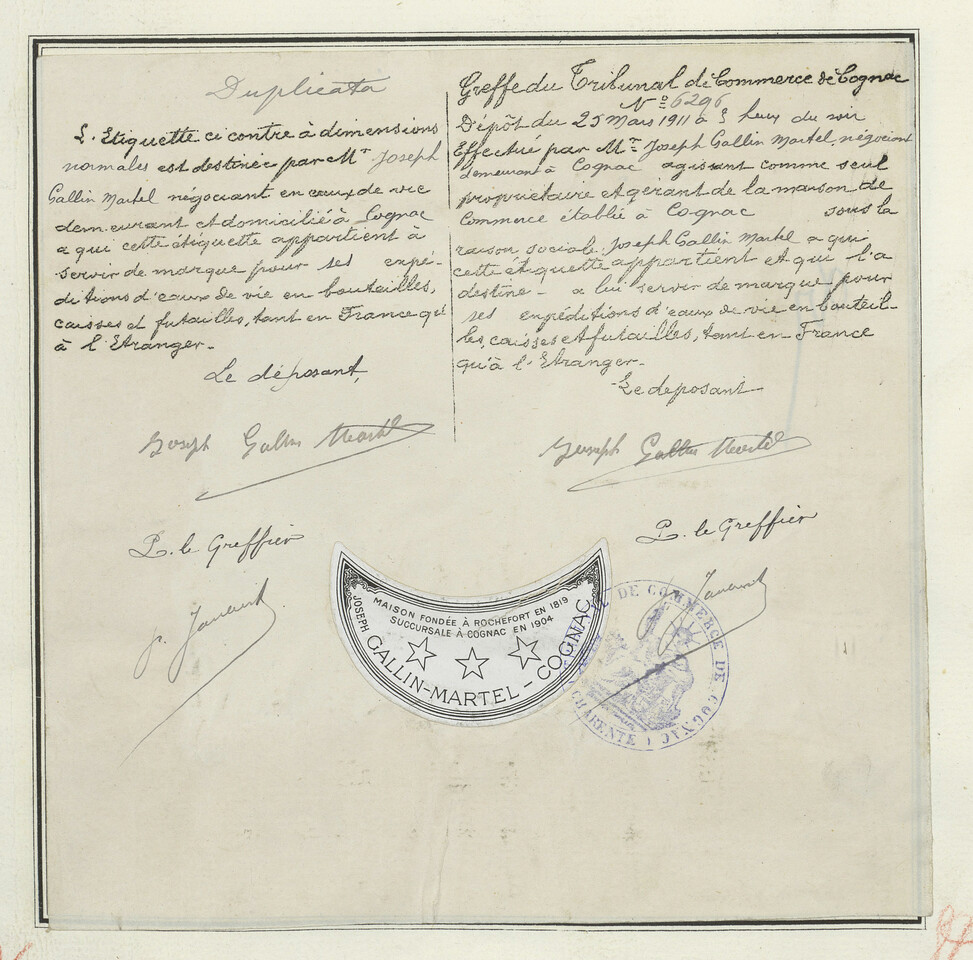 Duplicata
L'Etiquette ci contre à dimensions
normales est destinée par Mr Joseph
Gallin Martel négociant en eaux de vie
demeurant et domicilié à Cognac
a qui cette étiquette appartient à
servir de marque pour ses expé-
ditions d'eaux de vie en bouteilles,
caisses et futailles, tant en France qu'
à l'Etranger.-
Le déposant,
Joseph Gallin Martel
P. le Greffier
Greffe du Tribunal de Commerce de Cognac
No 6296
Dépôt du 25 Mars 1911 à heux du soir
Effectué par Mr Joseph Gallin Martel, négociant
demeurant à Cognac agissant comme seul
propriétaire et gérant de la maison de
Commerce établie à Cognac sous la
raison sociale Joseph Gallin Martel a qui
cette étiquette appartient et qui l'a
destine - a lui servir de marque pour
ses expéditions d'eaux de vie en bouteil-
les, caisses et futailles, tant en France
qu'à l'Etranger.-
Le deposant
Joseph Gallin Martel
P. le Greffier
MAISON FONDÉE À ROCHEFORT EN 1819
SUCCURSALE À COGNAC EN 1904
JOSEPH GALLIN-MARTEL - COGNAC
DE COMMERCE DE COGNAC
CHARENTE